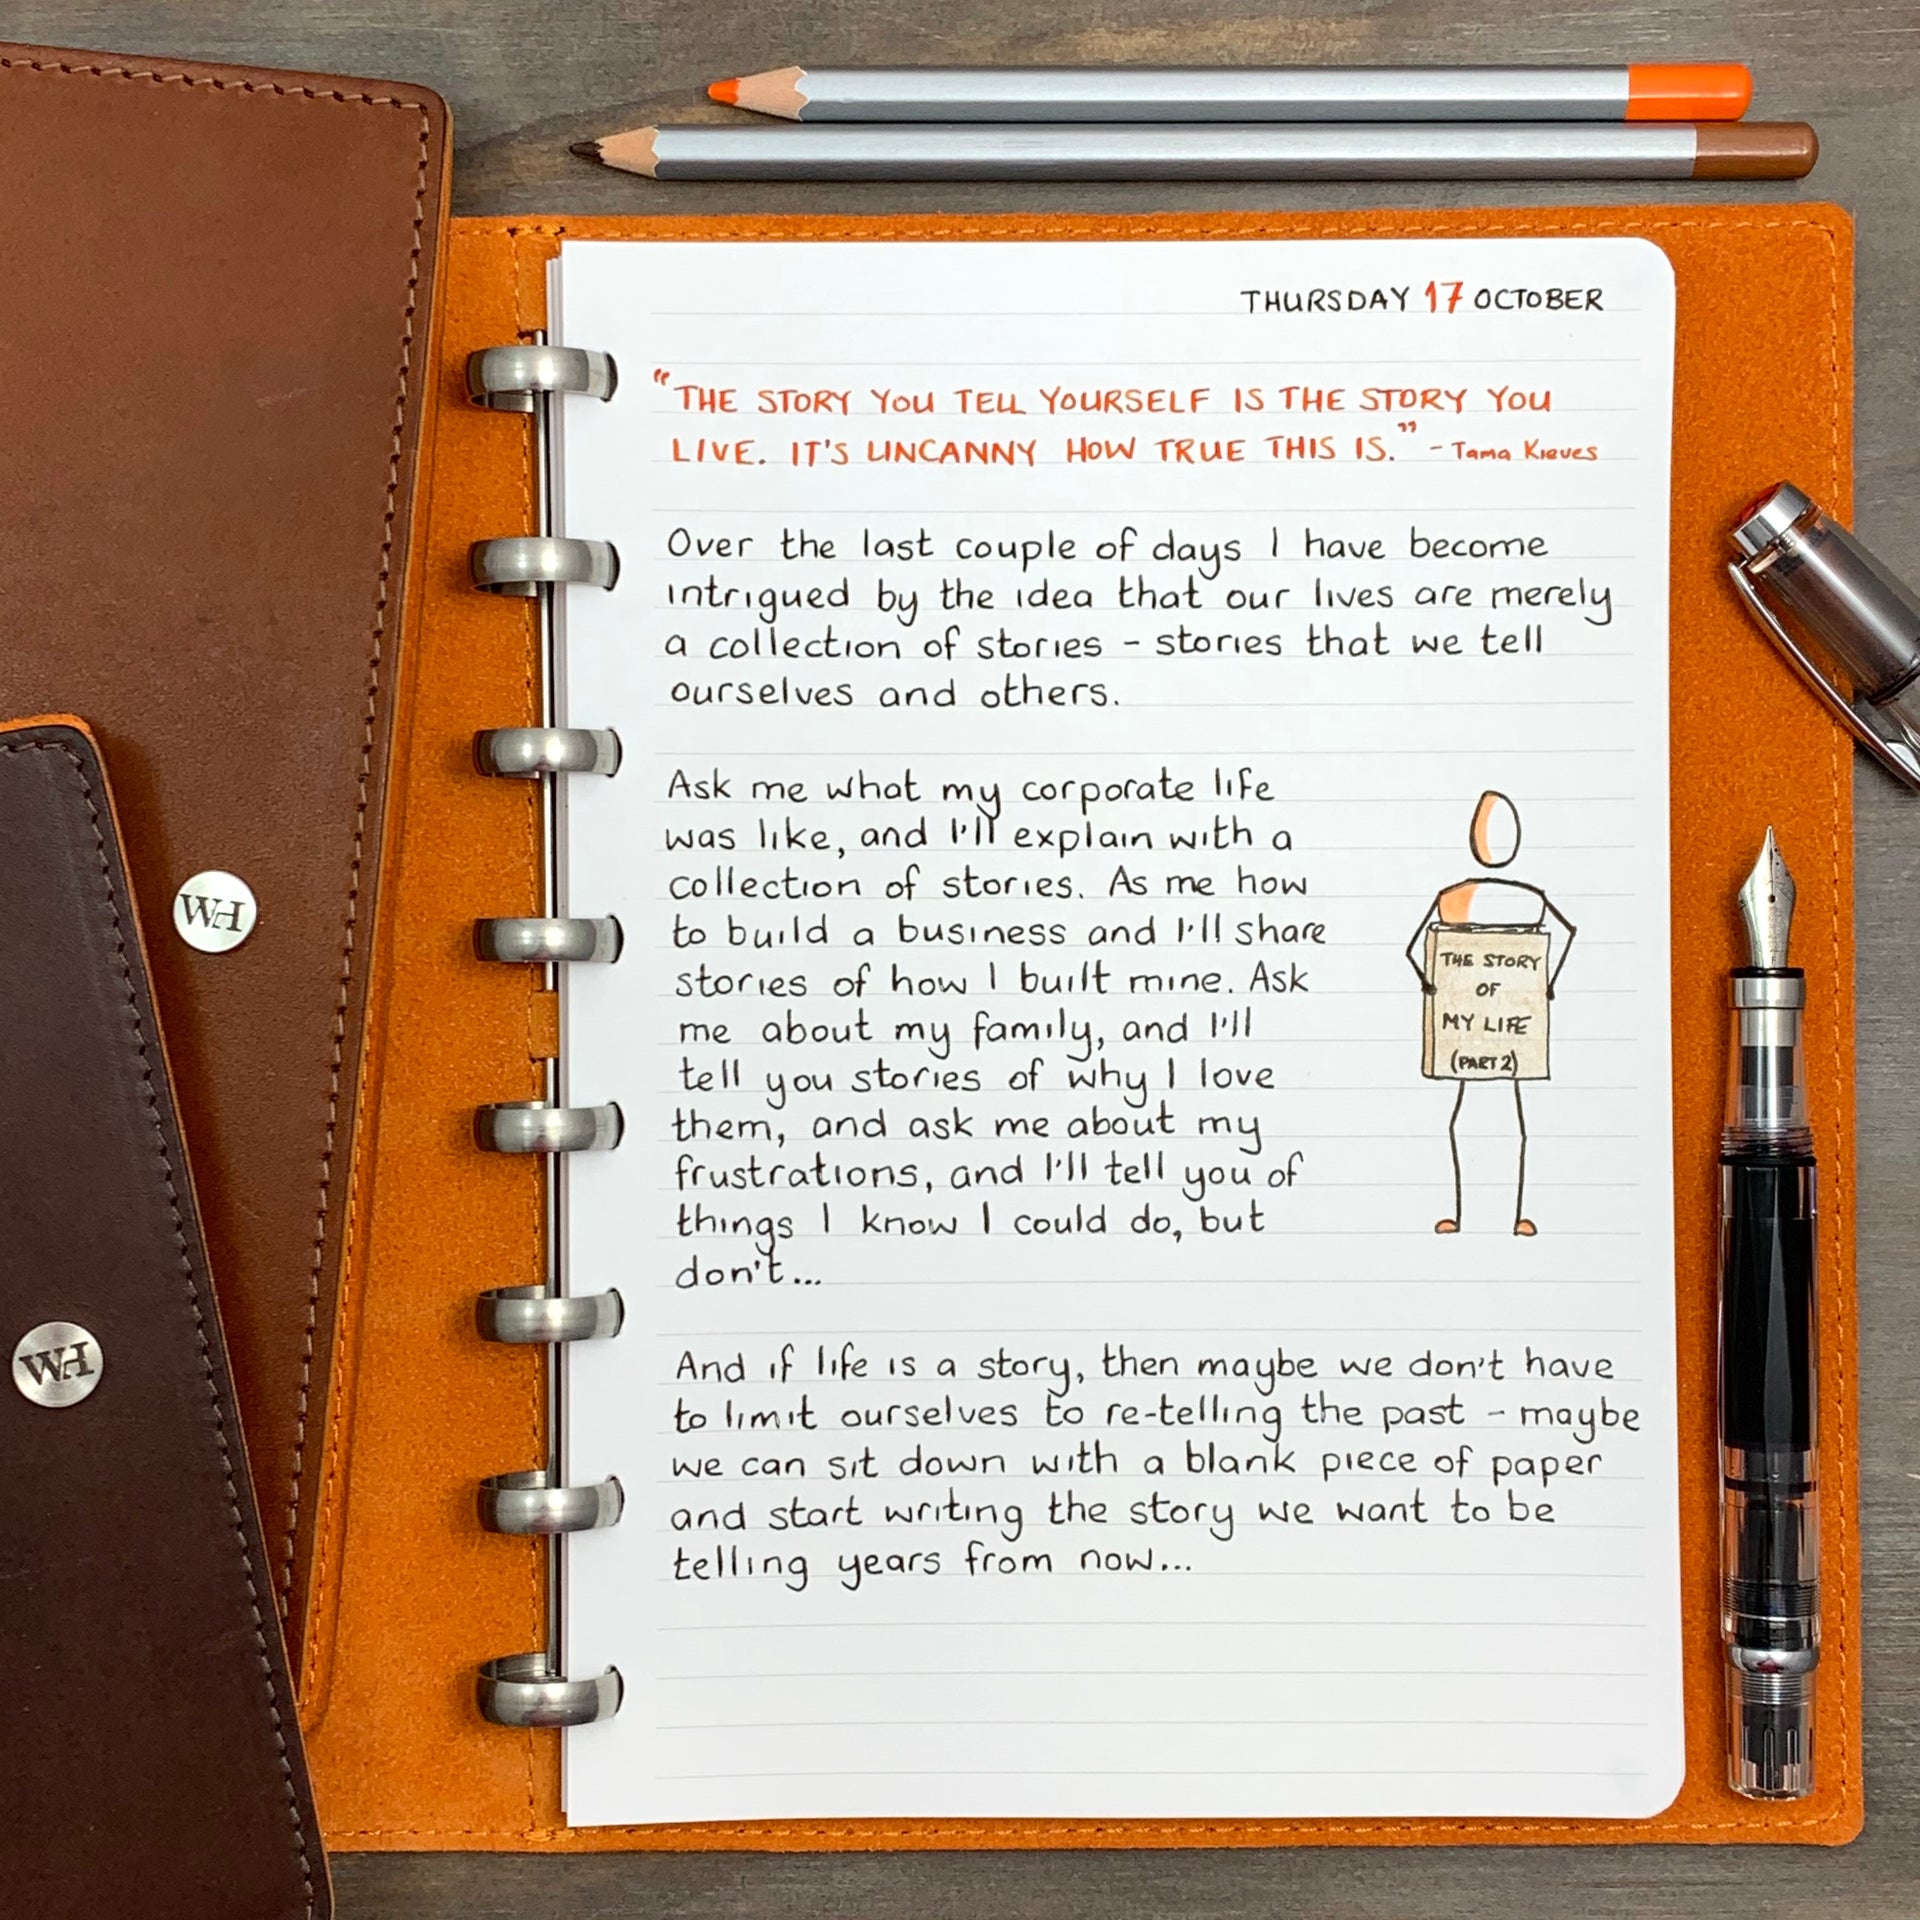 THURSDAY 17 OCTOBER
"THE STORY YOU TELL YOURSELF IS THE STORY YOU
LIVE. IT'S UNCANNY HOW TRUE THIS IS." - Tama Kieves
Over the last couple of days I have become
intrigued by the idea that our lives are merely
a collection of stories - stories that we tell
ourselves and others.
Ask me what my corporate life
was like, and I'll explain with a
collection of stories. As me how
to build a business and I'll share
stories of how I built mine. Ask
me about my family, and I'll
tell you stories of why I love
them, and ask me about my
frustrations, and I'll tell you of
things I know I could do, but
don't...
THE STORY
OF
MY LIFE
(PART 2)
And if life is a story, then maybe we don't have
to limit ourselves to re-telling the past - maybe
we can sit down with a blank piece of paper
and start writing the story we want to be
telling years from now...
WH
WH